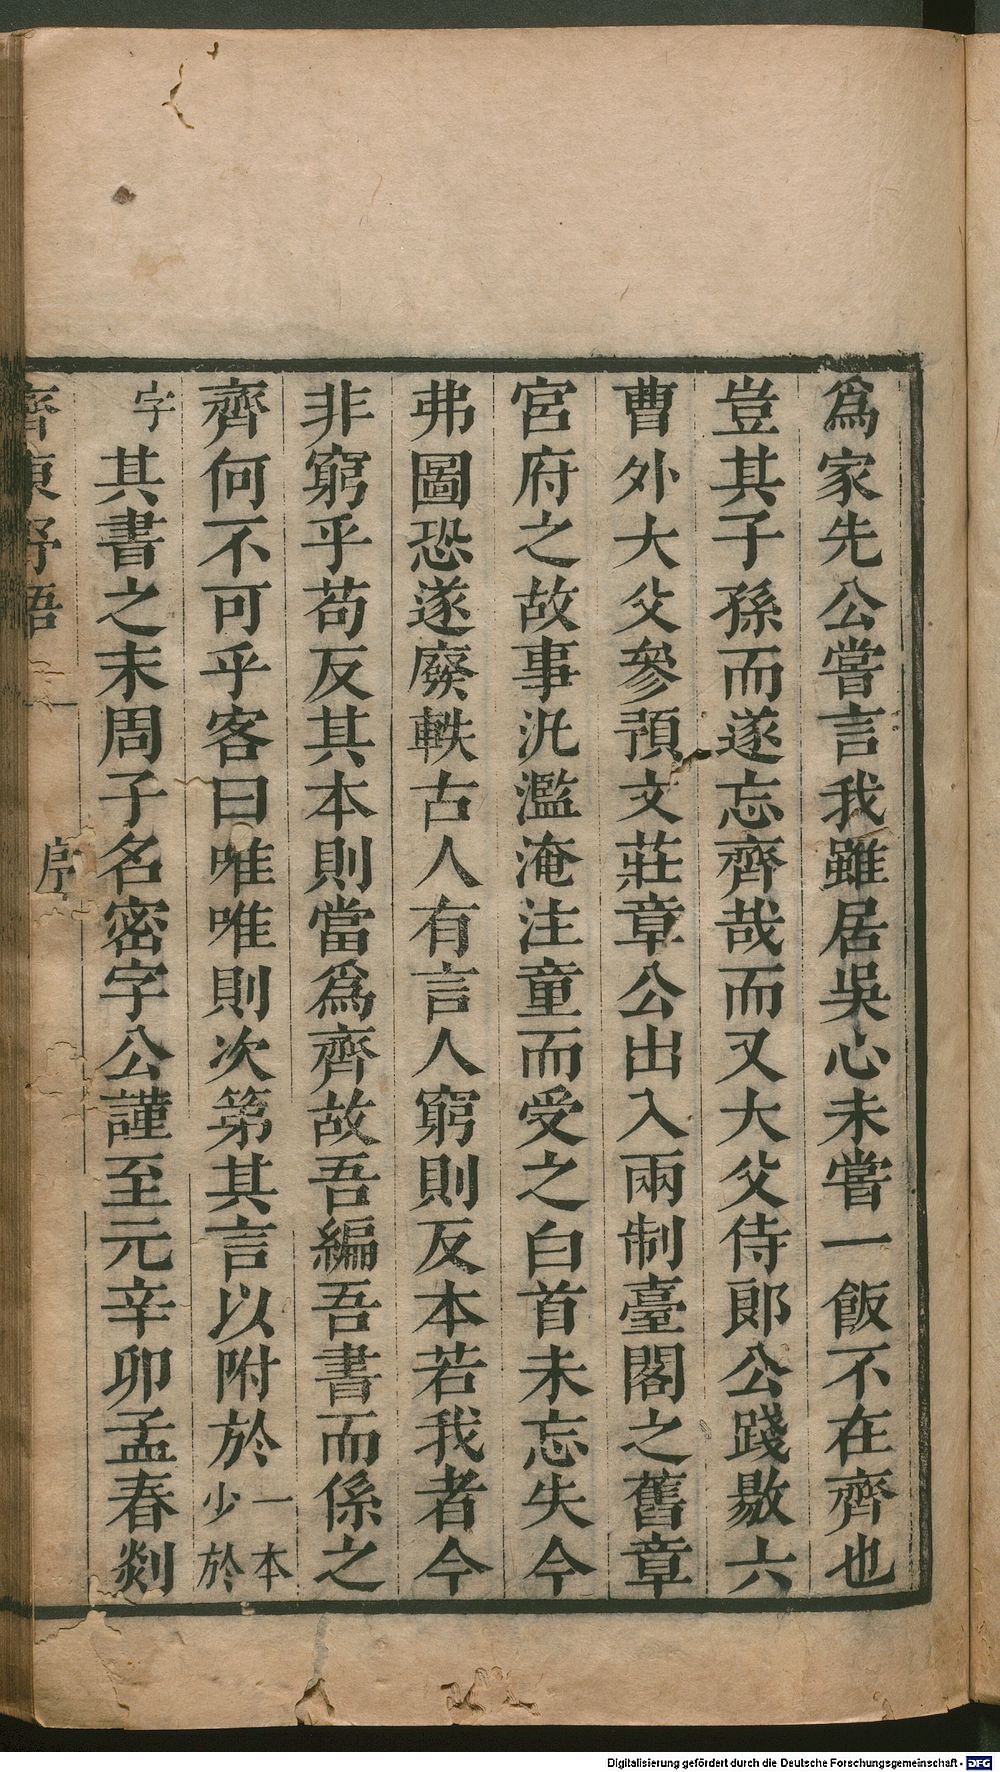 爲家先公嘗言我雖居吳心未嘗一飯不在齊也
豈其子孫而遂忘齊哉而又大父侍郞公踐敭六
曹外大父參預文莊章公出入兩制臺閣之舊章
宮府之故事汎濫淹注童而受之白首未忘失今
弗圖恐遂廢軼古人有言人窮則反本若我者今
非窮乎苟反其本則當爲齊故吾編吾書而係之
齊何不可乎客曰唯唯則次第其言以附於一本
少於
字其書之末周子名密字公謹至元辛卯孟春剡
齊東野語 序
Digitalisierung gefördert durch die Deutsche Forschungsgemeinschaft - DFG